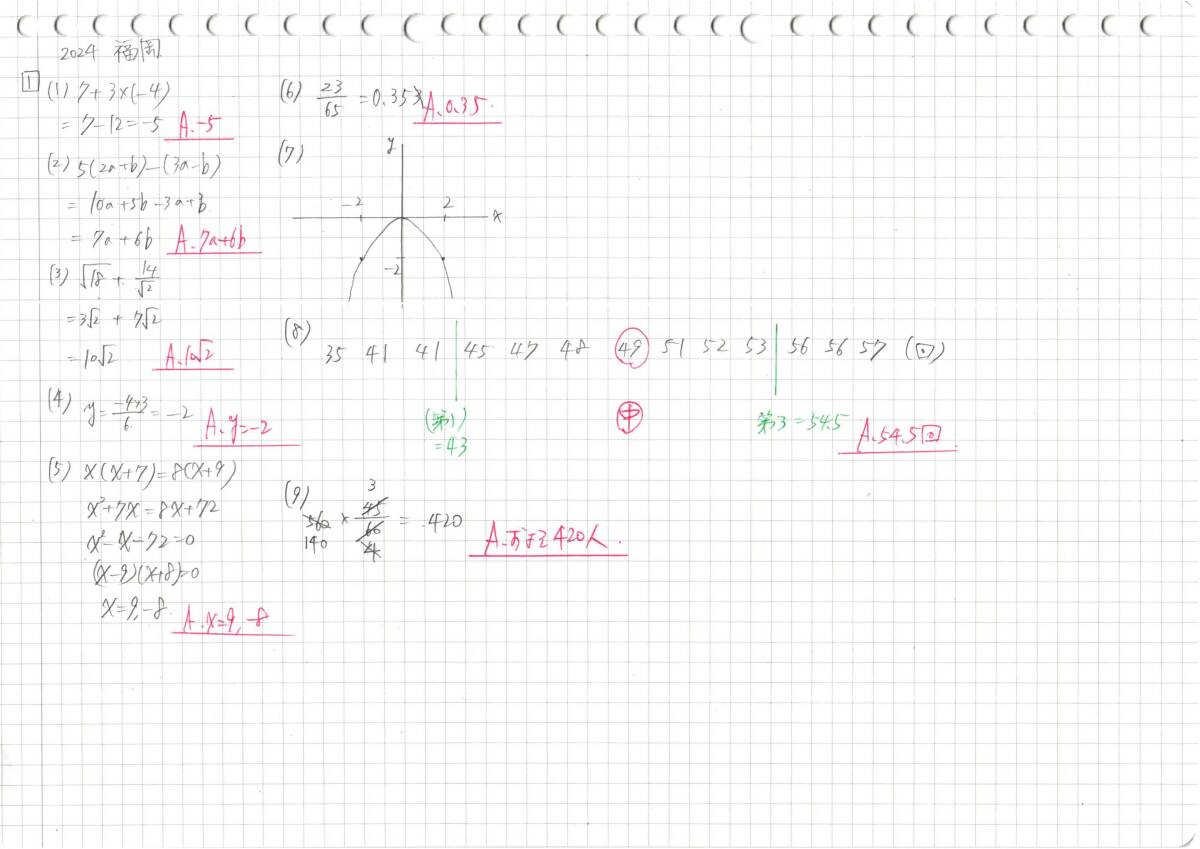 2024 福岡
1
(1) 7+3×(-4)
= 7-12=-5 A.-5
(2) 5(2a+b)-(3a-b)
= 10a+5b-3a+b
= 7a+6b A.7a+6b
(3) √18 + 14/√2
=3√2 + 7√2
=10√2 A.10√2
(4) y=-4×3/6=-2 A.y=-2
(5) x(x+7)=8(x+9)
x²+7x=8x+72
x²-x-72=0
(x-9)(x+8)=0
x=9,-8 A.x=9,-8
(6) 23/65 =0.353 A.0.35.
(7)
y
-2 2 x
-2
(8)
35 41 41 45 47 48 49 51 52 53 56 56 57 (回)
(第1) 中 第3=54.5 A.54.5回.
=43
(9) 3
560 × 45/60 = 420
140 4 A.およそ420人.